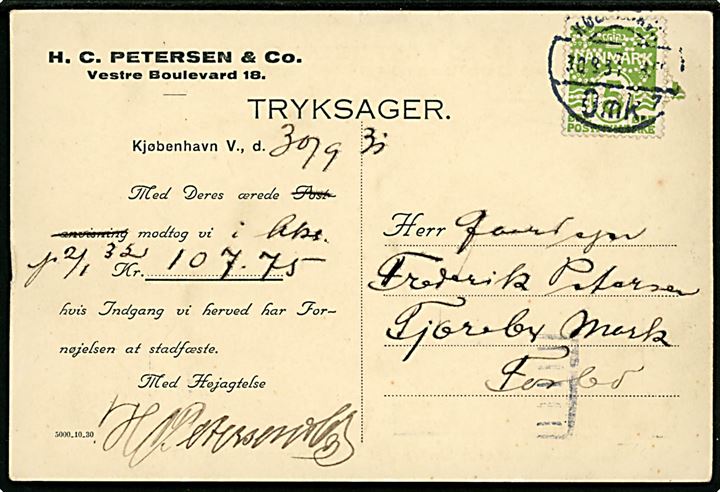 H. C. PETERSEN & Co.
Vestre Boulevard 18.
TRYKSAGER.
DANMARK
5
30.9.31
Omk.
Kjøbenhavn V., d. 30/9 31
Med Deres ærede Post-
anvisning modtog vi i
p 2/1 32 Kr. 107.75
hvis Indgang vi herved har For-
nøjelsen at stadfæste.
Med Højagtelse
H C Petersen & Co
5000.10.30
Herr Gaardejer
Frederik Petersen
Tjæreby Mark